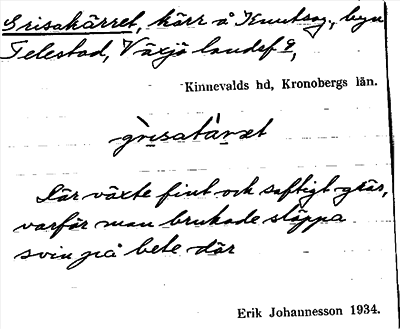 Grisakärret, kärr å Knutsag., byn
Telestad, Växjö landsf.,
Kinnevalds hd, Kronobergs län.
grisatàrət
Där växte fint och saftigt gräs,
varför man brukade släppa
svin på bete där
Erik Johannesson 1934.